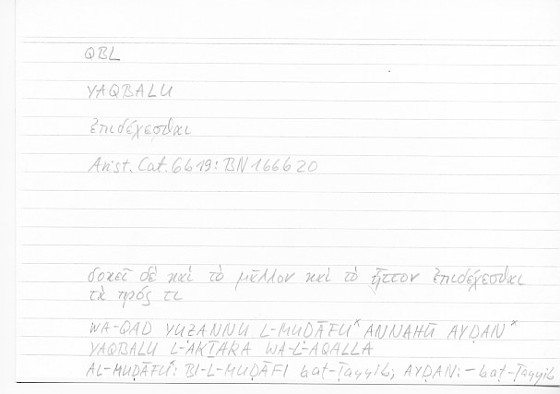 QBL
YAQBALU
ἐπιδέχεσθαι
Arist. Cat. 6b19: BN 166b20
δοκεῖ δὲ καὶ τὸ μᾶλλον καὶ τὸ ἧττον ἐπιδέχεσθαι
τὰ πρός τι
WA-QAD YUẒANNU L-MUḌĀFU* ANNAHŪ AYḌAN*
YAQBALU L-AKṮARA WA-L-AQALLA
AL-MUḌĀFU*: BI-L-MUḌĀFI baṭ-Ṭayyib; AYḌAN: – baṭ-Ṭayyib